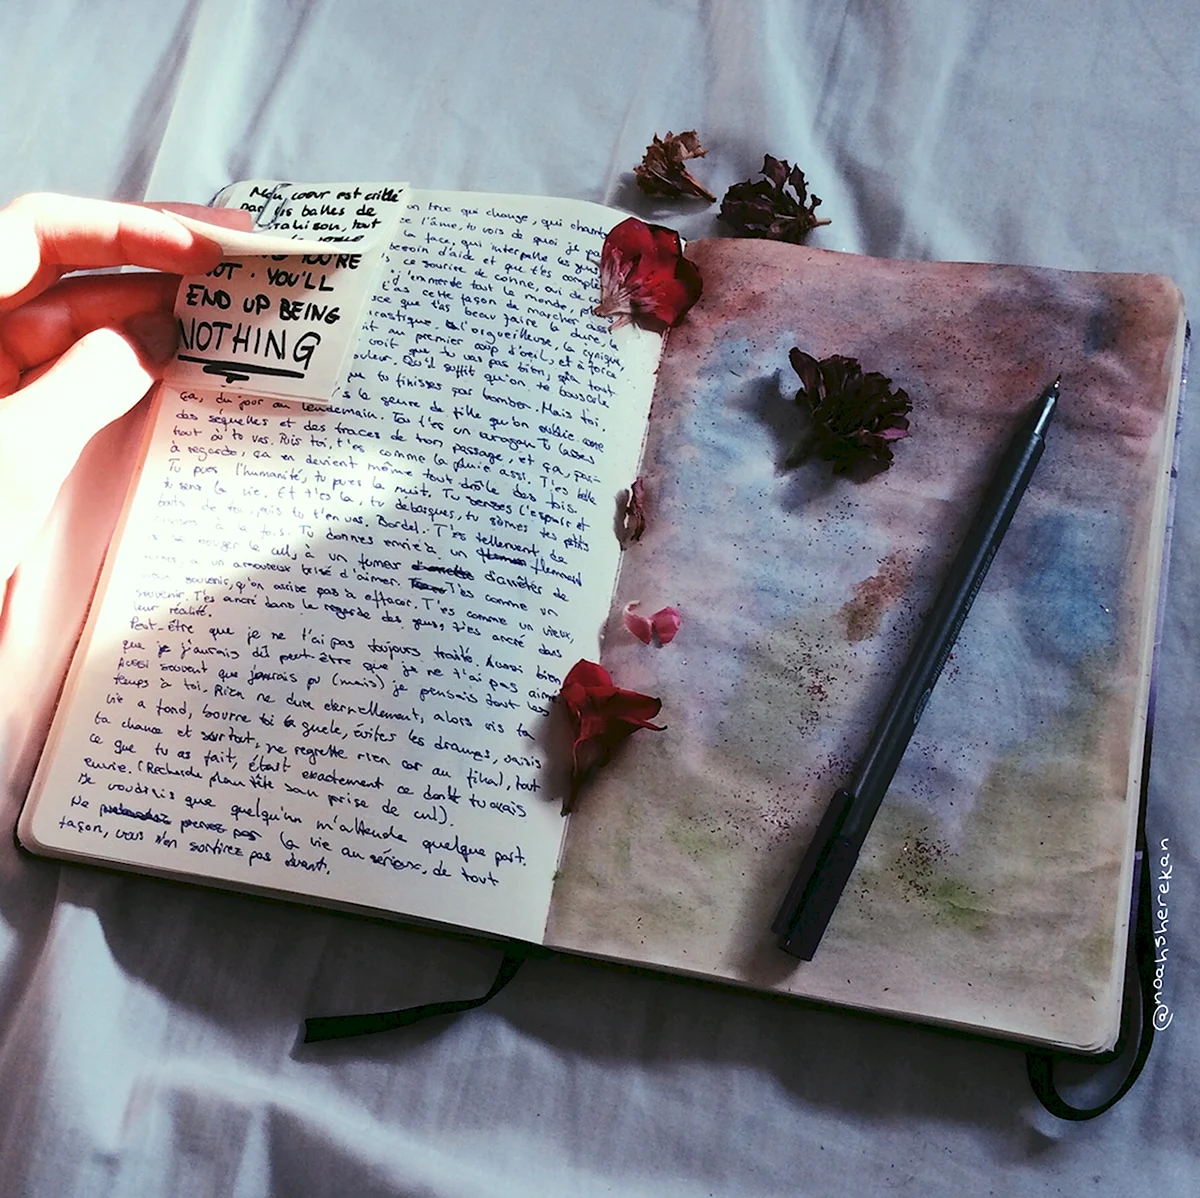 Mon coeur est criblé
par les balles de
trahison, tout
YOU'RE
NOT. YOU'LL
END UP BEING
NOTHING
un truc qui change, qui
l'âme, tu vois de quoi je
la face, qui interpelle les gens
besoin d'aide et que t'es
ce sourire de conne, qui de
d'emmerde tout le monde,
t'as cette façon de marcher
que t'as beau faire la dure, la
l'orgueilleuse, la cynique,
au premier coup d'oeil, et à force
voit que tu vas pas bien, tout
Qu'il suffit qu'on te bouscule
que tu finisses par tomber. Mais toi,
le genre de fille qu'on oublie comme
ça, du jour au lendemain. Toi t'es un ouragan Tu laisses
des séquelles et des traces de ton passage, et ça,
tout où tu vas. Puis toi, t'es comme la pluie assi. T'es belle
à regarder, ça en devient même tout drôle des fois.
Tu pues l'humanité, tu pues la nuit. Tu l'espoir et
tu sens la vie. Et t'es là, tu débarques, tu sèmes tes petits
bouts de toi, puis tu t'en vas. Bordel. T'es tellement de
à la fois. Tu donnes envie à un flemmard
de se bouger le cul, à un fumer d'arrêter de
à un amoureux brisé d'aimer. T'es comme un
souvenir, qu'on arrive pas à effacer. T'es comme un vieux
souvenir. T'es ancré dans le regarde des gens, t'es ancré dans
leur réalité.
Peut-être que je ne t'ai pas toujours traité. Aussi bien
que je j'aurais dû peut-être que je ne t'ai pas aimé
Aussi souvent que j'aurais pu (mais) je pensais tout les
temps à toi. Rien ne dure eternellement, alors vis ta
vie a fond, bourre toi la guele, évites les drames, saisis
ta chance et surtout, ne regrette rien car au final, tout
ce que tu as fait, était exactement ce dont tu avais
envie. (Recherche plan tête san prise de cul).
Je voudrais que quelqu'un m'attende quelque part.
Ne prenez pas la vie au sérieux, de tout
façon, vous n'en sortirez pas vivant.
@noahsherekan